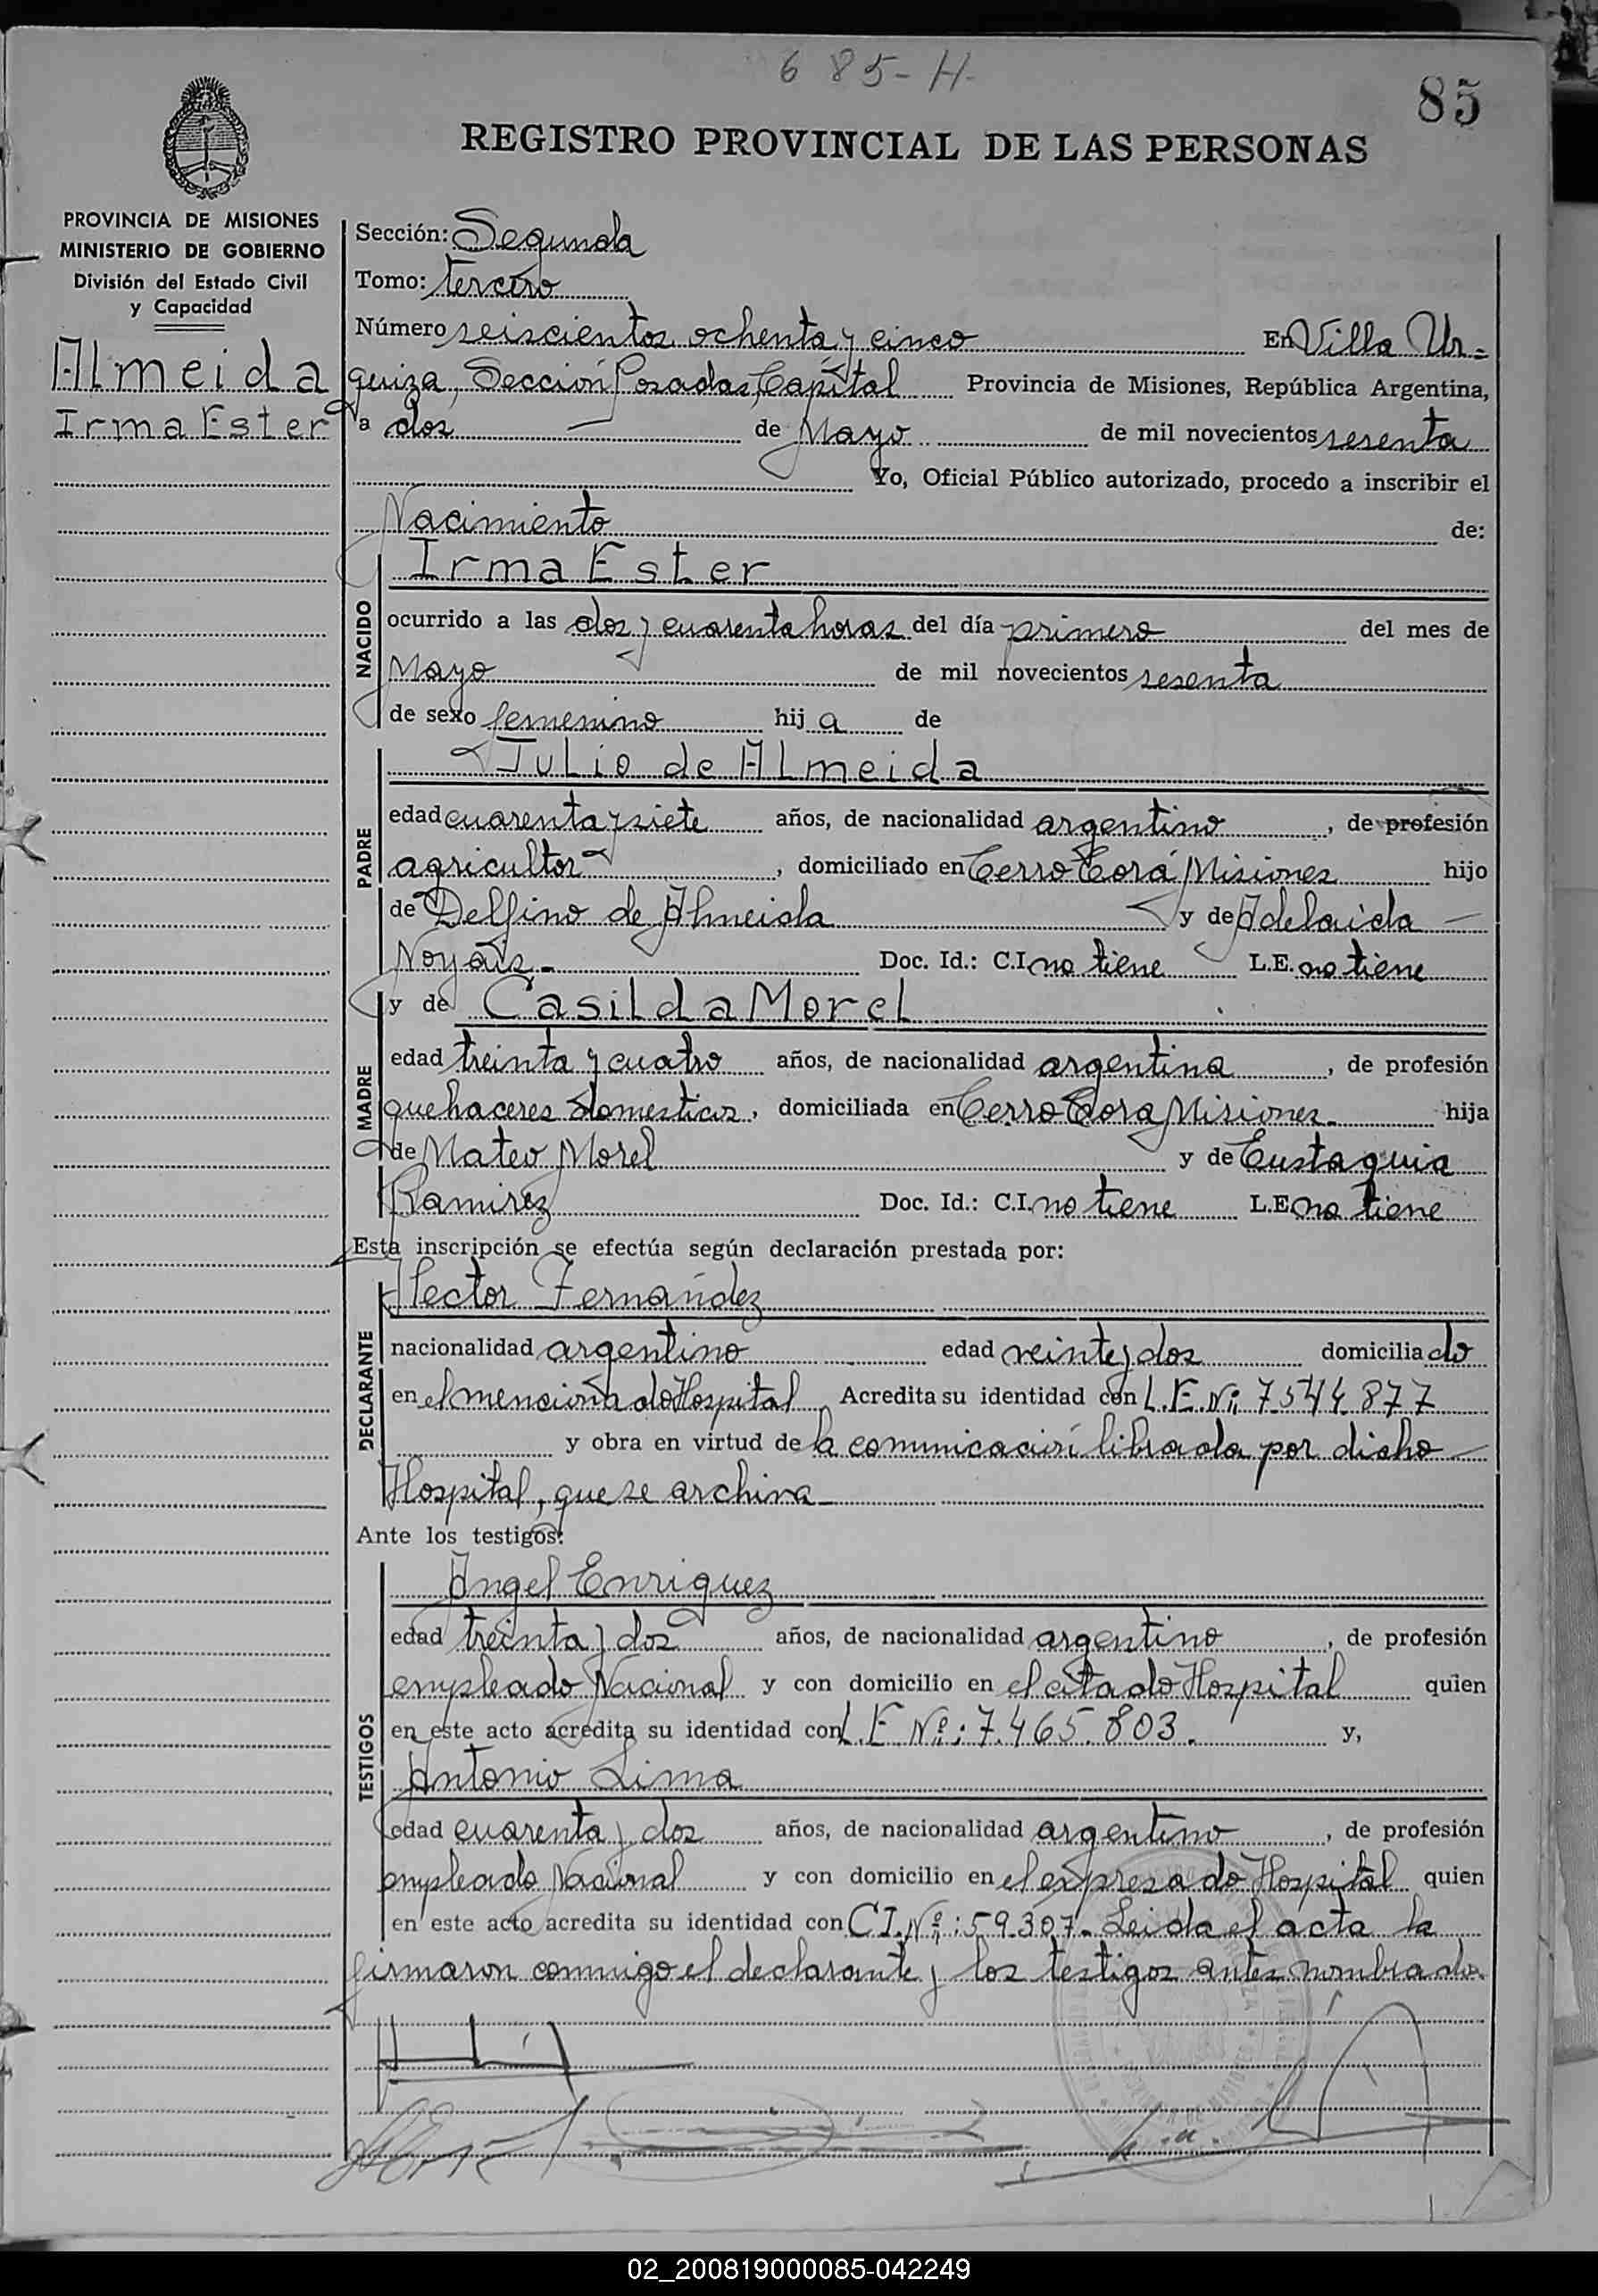 685-H-
85
REGISTRO PROVINCIAL DE LAS PERSONAS
PROVINCIA DE MISIONES
MINISTERIO DE GOBIERNO
División del Estado Civil
y Capacidad
Almeida
Irma Ester
Sección: Segunda
Tomo: tercero
Número seiscientos ochenta y cinco En Villa Ur=
quiza, Sección Posadas, Capital Provincia de Misiones, República Argentina,
a dos de Mayo de mil novecientos sesenta
Yo, Oficial Público autorizado, procedo a inscribir el
Nacimiento de:
NACIDO
Irma Ester
ocurrido a las dos y cuarenta horas del día primero del mes de
Mayo de mil novecientos sesenta
de sexo femenino hija de
PADRE
Julio de Almeida
edad cuarenta y siete años, de nacionalidad argentino, de profesión
agricultor, domiciliado en Cerro Corá Misiones hijo
de Delfino de Almeida y de Adelaida
Doc. Id.: C.I. no tiene L.E. no tiene
MADRE
y de Casilda Morel
edad treinta y cuatro años, de nacionalidad argentina, de profesión
quehaceres domesticos, domiciliada en Cerro Corá Misiones hija
de Mateo Morel y de Eustaquia
Ramirez Doc. Id.: C.I. no tiene L.E. no tiene
Esta inscripción se efectúa según declaración prestada por:
DECLARANTE
Hector Fernández
nacionalidad argentino edad veinte y dos domiciliado
en el mencionado Hospital Acredita su identidad con L.E. Nº: 7544877
y obra en virtud de la comunicación librada por dicho
Hospital, que se archiva
Ante los testigos:
TESTIGOS
Angel Enriquez
edad treinta y dos años, de nacionalidad argentino, de profesión
empleado Nacional y con domicilio en el citado Hospital quien
en este acto acredita su identidad con L.E. Nº: 7.465.803. y,
Antonio Lima
edad cuarenta y dos años, de nacionalidad argentino, de profesión
empleado Nacional y con domicilio en el expresado Hospital quien
en este acto acredita su identidad con C.I. Nº: 59.307. Leida el acta la
firmaron conmigo el declarante y los testigos antes nombrados.
02_200819000085-042249